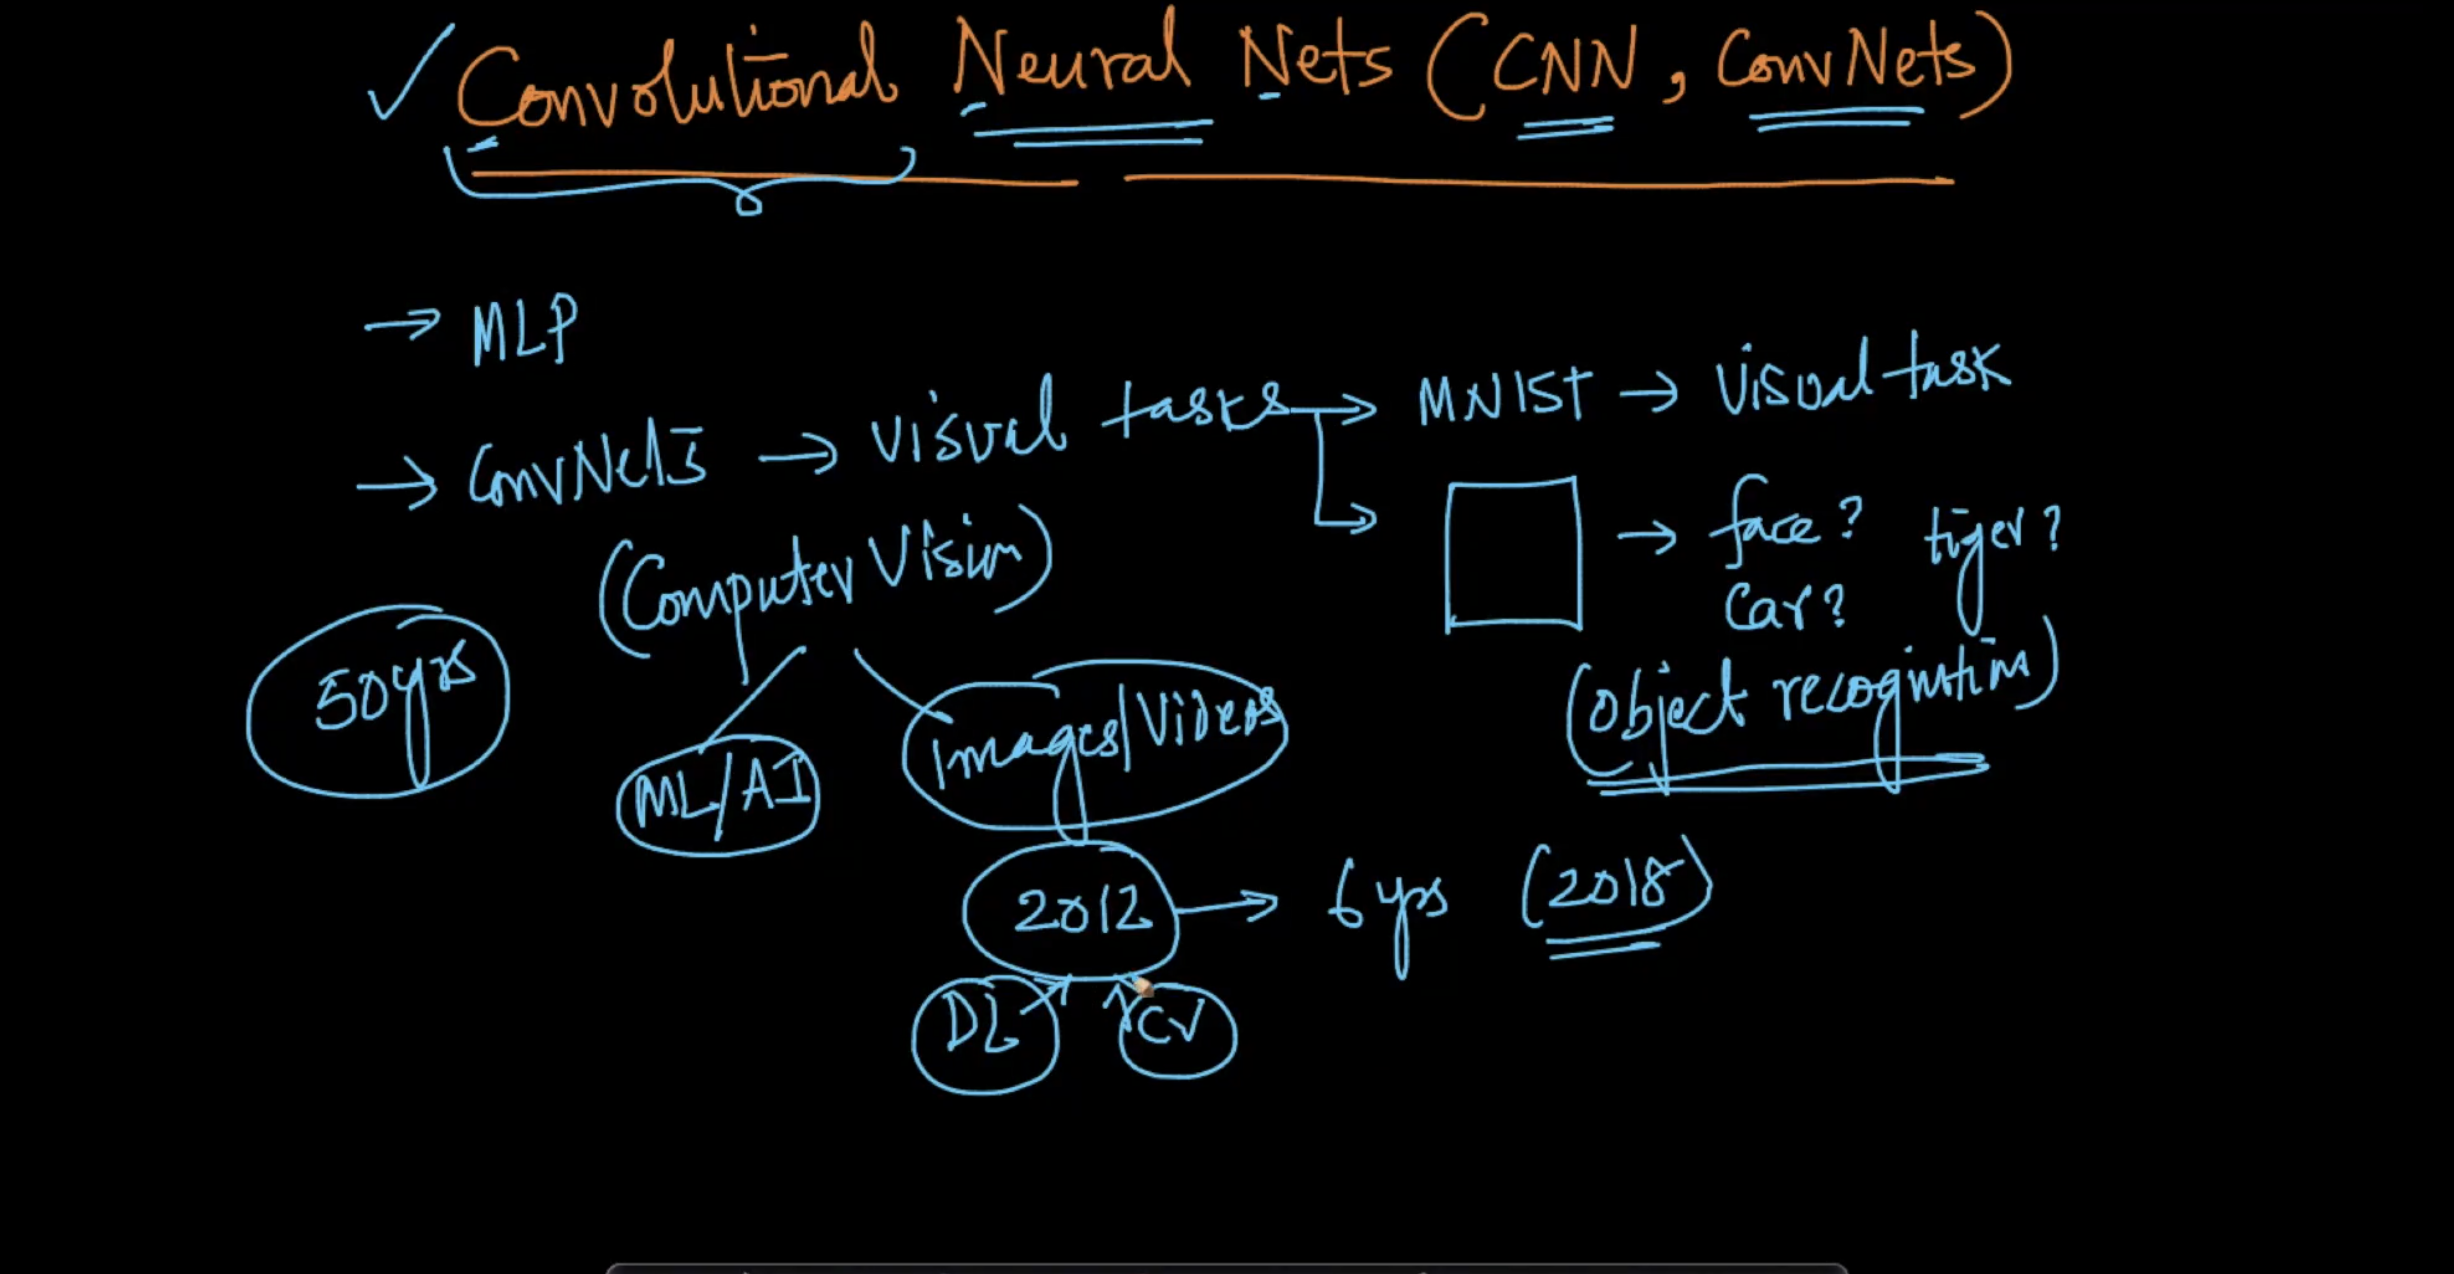 ✓ Convolutional Neural Nets (CNN, ConvNets)
→ MLP
→ ConvNets → visual tasks → MNIST → visual task
(Computer Vision)
→ face? tiger?
car?
(object recognition)
50yrs
ML/AI
images/videos
2012 → 6 yrs (2018)
DL
CV